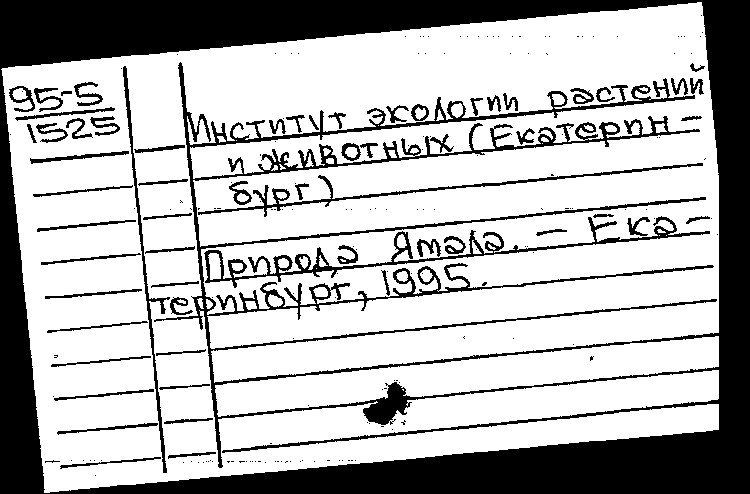 95-5
1525
Институт экологии растений
и животных (Екатерин-
бург)
Природа Ямала. - Ека-
теринбург, 1995.